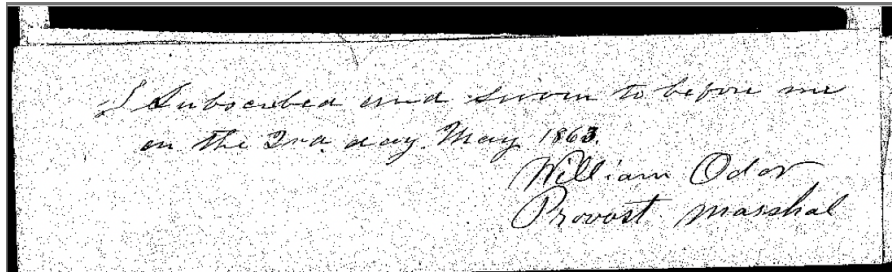 Subscribed and sworn to before me
on the 2nd day May 1863.
William Odor
Provost Marshal